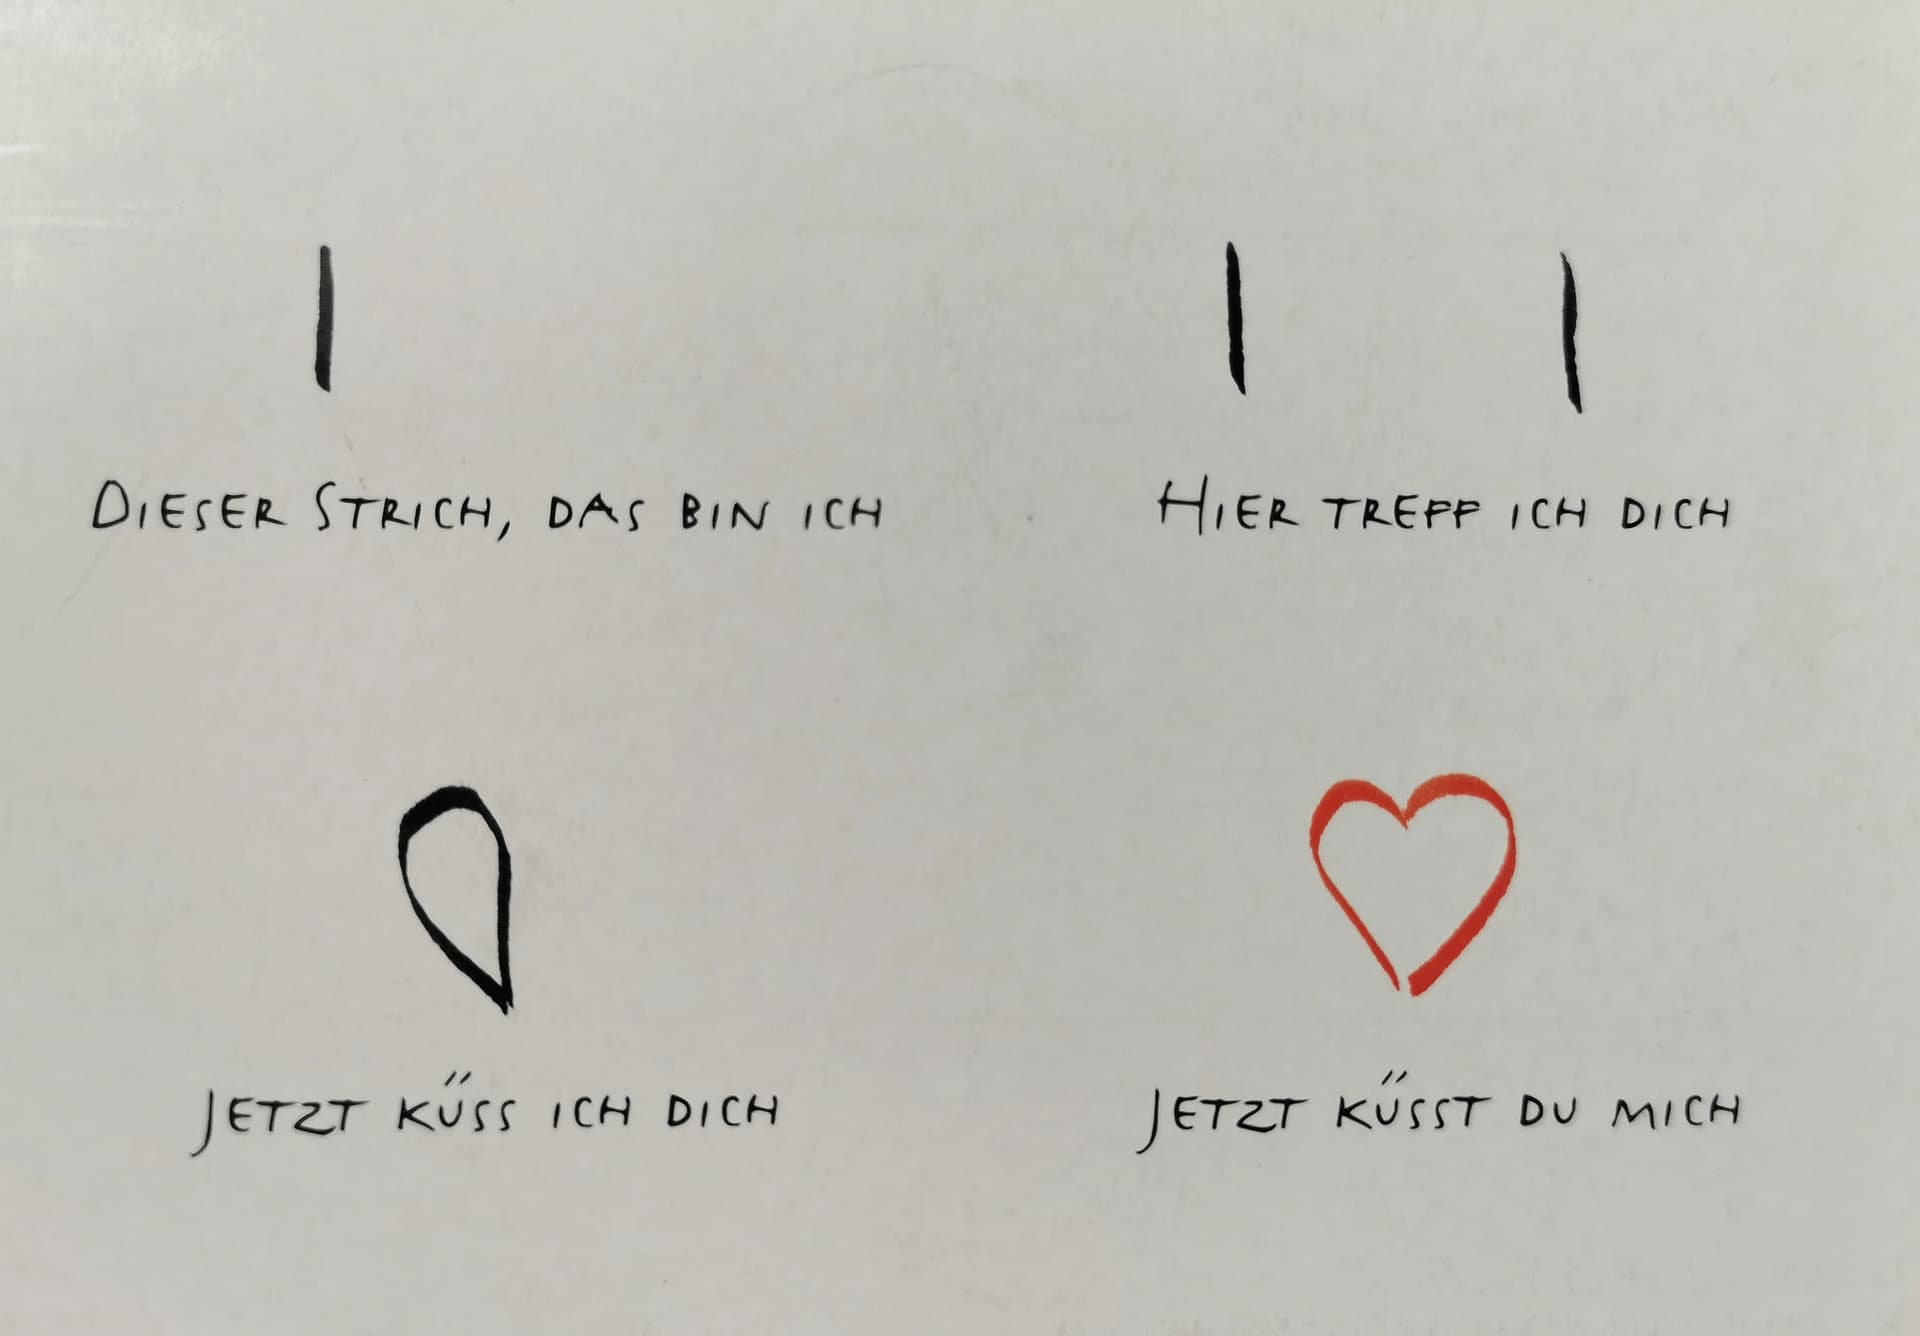 DIESER STRICH, DAS BIN ICH
HIER TREFF ICH DICH
JETZT KÜSS ICH DICH
JETZT KÜSST DU MICH